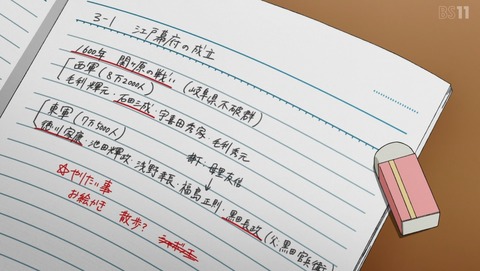 BS11
3-1 江戸幕府の成立
1600年 関ヶ原の戦い (岐阜県不破群)
西軍(8万2000人)
毛利輝元・石田三成・宇喜田秀家 毛利秀元
東軍(7万5000人)
母里友信
徳川家康・池田輝政・浅野幸長・福島正則・黒田長政 (父.黒田官兵衛)
やりたい事
お絵かき 散歩?